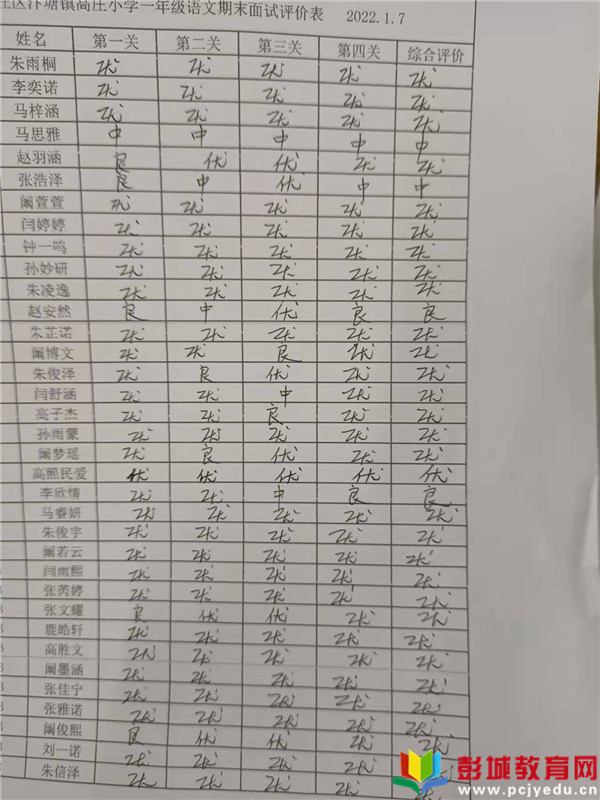 庄区汴塘镇高庄小学一年级语文期末面试评价表 2022.1.7
姓名 第一关 第二关 第三关 第四关 综合评价
朱雨桐 优 优 优 优 优
李奕诺 优 优 优 优 优
马梓涵 优 优 优 优 优
马思雅 中 中 中 中 中
赵羽涵 良 优 优 优 优
张浩泽 良 中 优 中 中
阚萱萱 优 优 优 优 优
闫婷婷 优 优 优 优 优
钟一鸣 优 优 优 优 优
孙妙研 优 优 优 优 优
朱凌逸 优 优 优 优 优
赵安然 良 中 优 良 良
朱芷诺 优 优 优 优 优
阚博文 优 优 良 优 优
朱俊泽 优 良 优 优 优
闫舒涵 优 优 中 优 优
高子杰 优 优 良 优 优
孙雨蒙 优 优 优 优 优
阚梦瑶 优 良 优 优 优
高熙民爱 优 优 优 优 优
李欣情 优 优 中 良 良
马睿妍 优 优 优 优 优
朱俊宇 优 优 优 优 优
阚若云 优 优 优 优 优
闫雨熙 优 优 优 优 优
张芮婷 优 优 优 优 优
张文耀 良 优 优 优 优
鹿皓轩 优 优 优 优 优
高胜文 优 优 优 优 优
阚墨涵 优 优 优 优 优
张佳宁 优 优 优 优 优
张雅诺 优 优 优 优 优
阚俊熙 良 优 优 优 优
刘一诺 优 优 优 优 优
朱信泽 优 优 优 优
彭城教育网
www.pcjyedu.cn